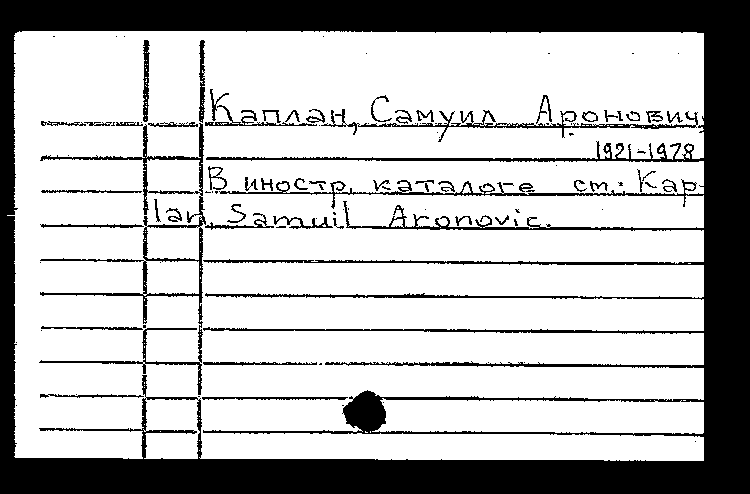 Каплан, Самуил Аронович,
1921-1978
В иностр. каталоге см.: Kap-
lan, Samuil Aronovic.